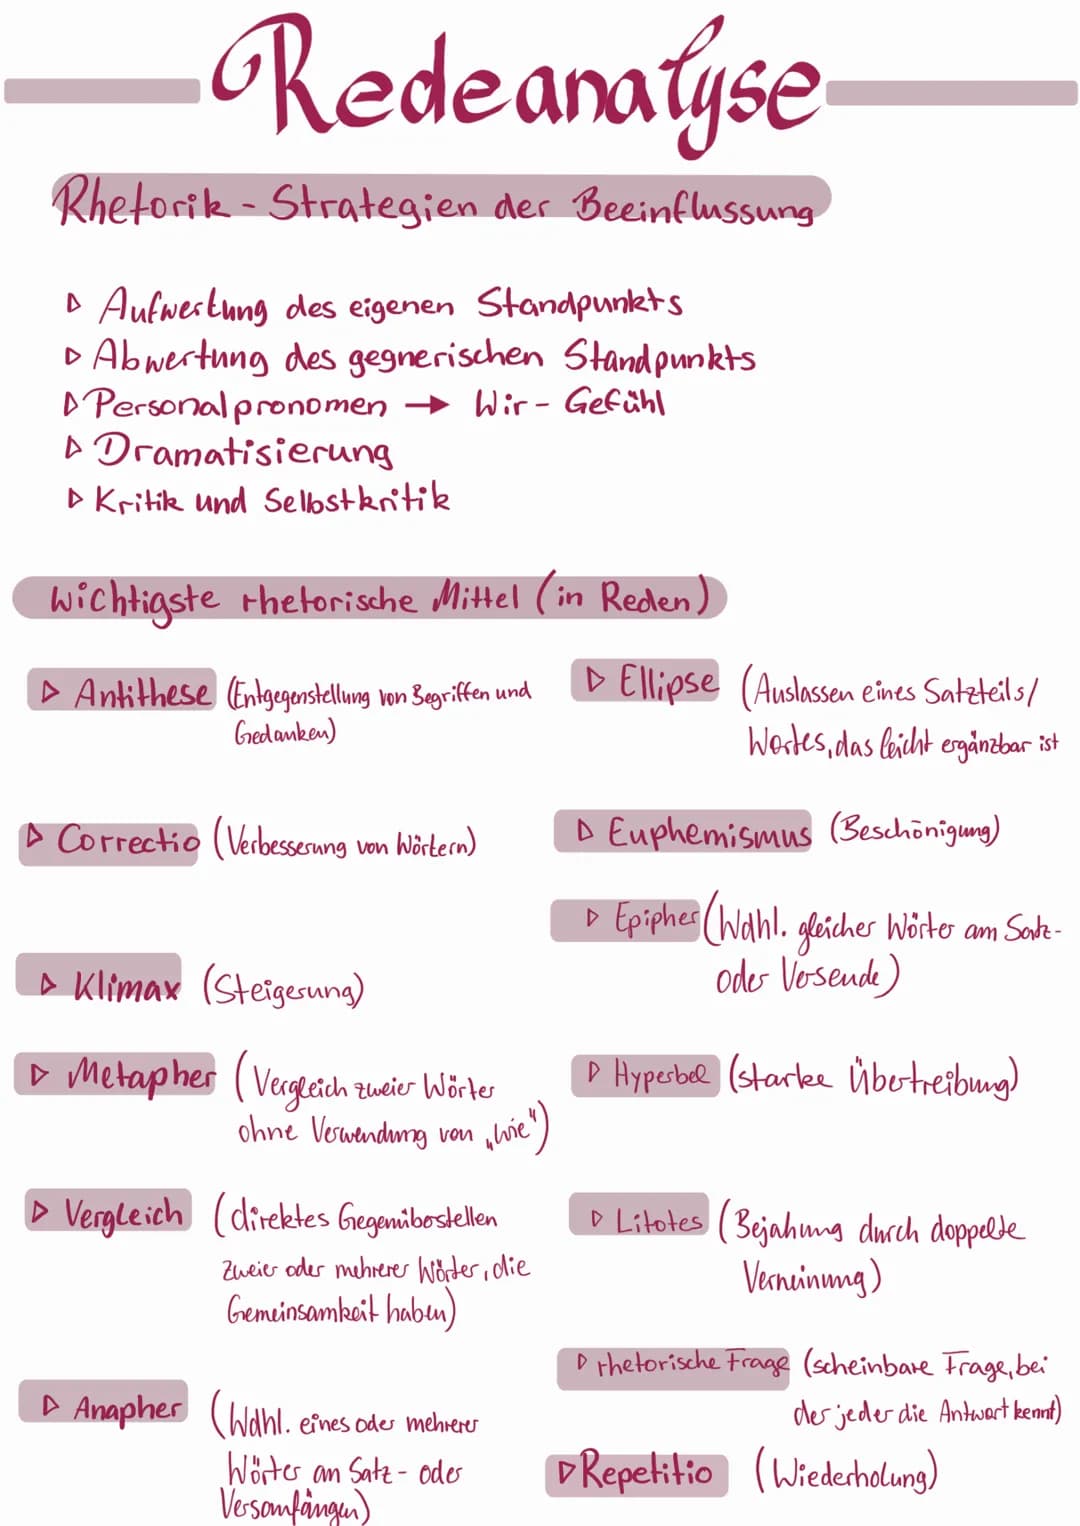 Redeanalyse
Rhetorik - Strategien der Beeinflussung
▷ Aufwertung des eigenen Standpunkts
▷ Abwertung des gegnerischen Standpunkts
▷ Personalpronomen → Wir - Gefühl
▷ Dramatisierung
▷ Kritik und Selbstkritik
Wichtigste rhetorische Mittel (in Reden)
▷ Antithese (Entgegenstellung von Begriffen und
Gedanken)
▷ Correctio (Verbesserung von Wörtern)
▷ Klimax (Steigerung)
▷ Metapher (Vergleich zweier Wörter
ohne Verwendung von „wie")
▷ Vergleich (direktes Gegenüberstellen
zweier oder mehrerer Wörter, die
Gemeinsamkeit haben)
▷ Anapher (Wdhl. eines oder mehrerer
Wörter an Satz - oder
Versanfängen)
▷ Ellipse (Auslassen eines Satzteils/
Wortes, das leicht ergänzbar ist
▷ Euphemismus (Beschönigung)
▷ Epipher (Wdhl. gleicher Wörter am Satz-
oder Versende)
▷ Hyperbel (starke Übertreibung)
▷ Litotes (Bejahung durch doppelte
Verneinung)
▷ rhetorische Frage (scheinbare Frage, bei
der jeder die Antwort kennt)
▷ Repetitio (Wiederholung)